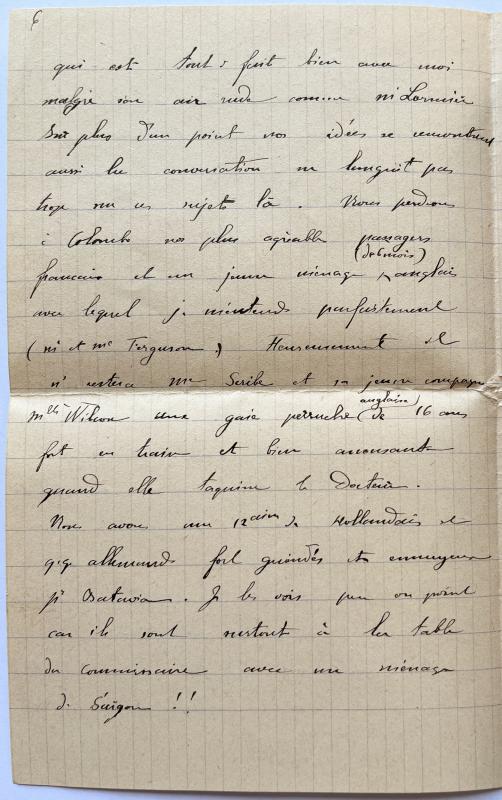 6
qui est tout à fait bien avec moi
malgré son air rude comme
Sur plus d'un point nos idées se rencontrent
aussi la conversation ne languit pas
trop sur ces sujets là. Nous perdons
à Colombo nos plus agréables passagers
(de 6 mois)
français et un jeune ménage anglais
avec lequel je m'entends parfaitement
(Mr et Me Ferguson) Heureusement il
n' restera Me Scribe et sa jeune compagne
anglaise
Melle Wilson une gaie perruche (de 16 ans
fort en train et bien amusante
quand elle taquine le Docteur.
Nous avons une 12aine de Hollandais et
qq allemands fort guindés et ennuyeux
pr Batavia. Je les vois peu ou point
car ils sont surtout à la table
du commissaire avec un ménage
de Saïgon !!